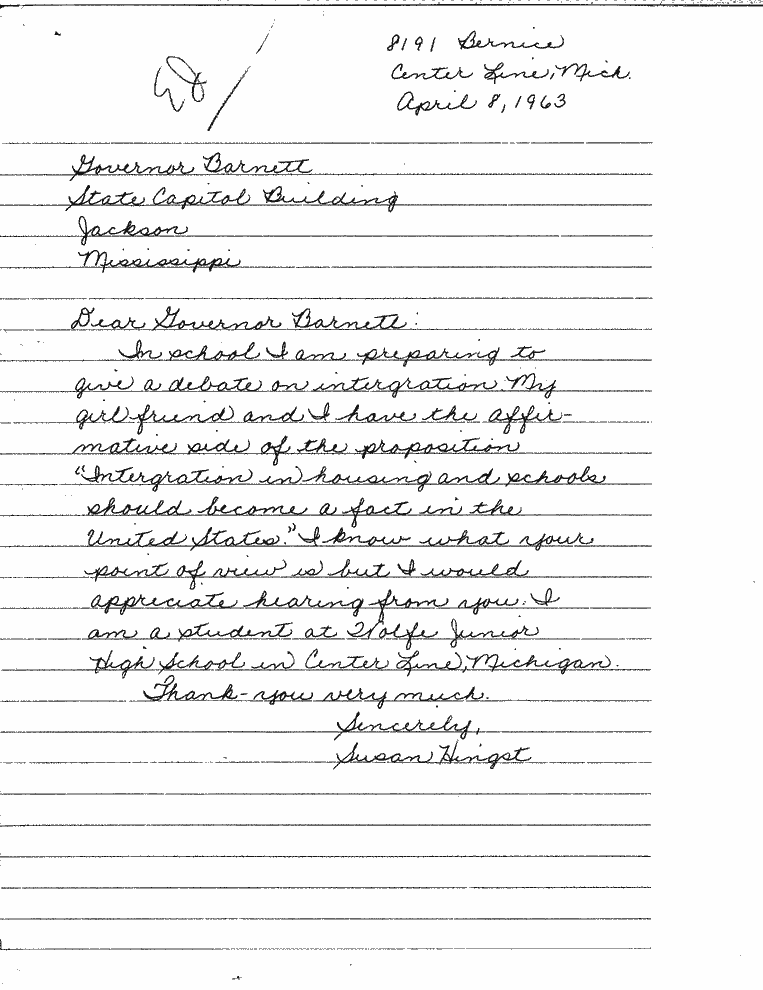 8191 Bernice
Center Line, Mich.
April 8, 1963
Governor Barnett
State Capitol Building
Jackson
Mississippi
Dear Governor Barnett:
In school I am preparing to
give a debate on intergration. My
girl friend and I have the affir-
mative side of the proposition
"Intergration in housing and schools
should become a fact in the
United States." I know what your
point of view is but I would
appreciate hearing from you. I
am a student at Wolfe Junior
High School in Center Line, Michigan.
Thank-you very much.
Sincerely,
Susan Hingst